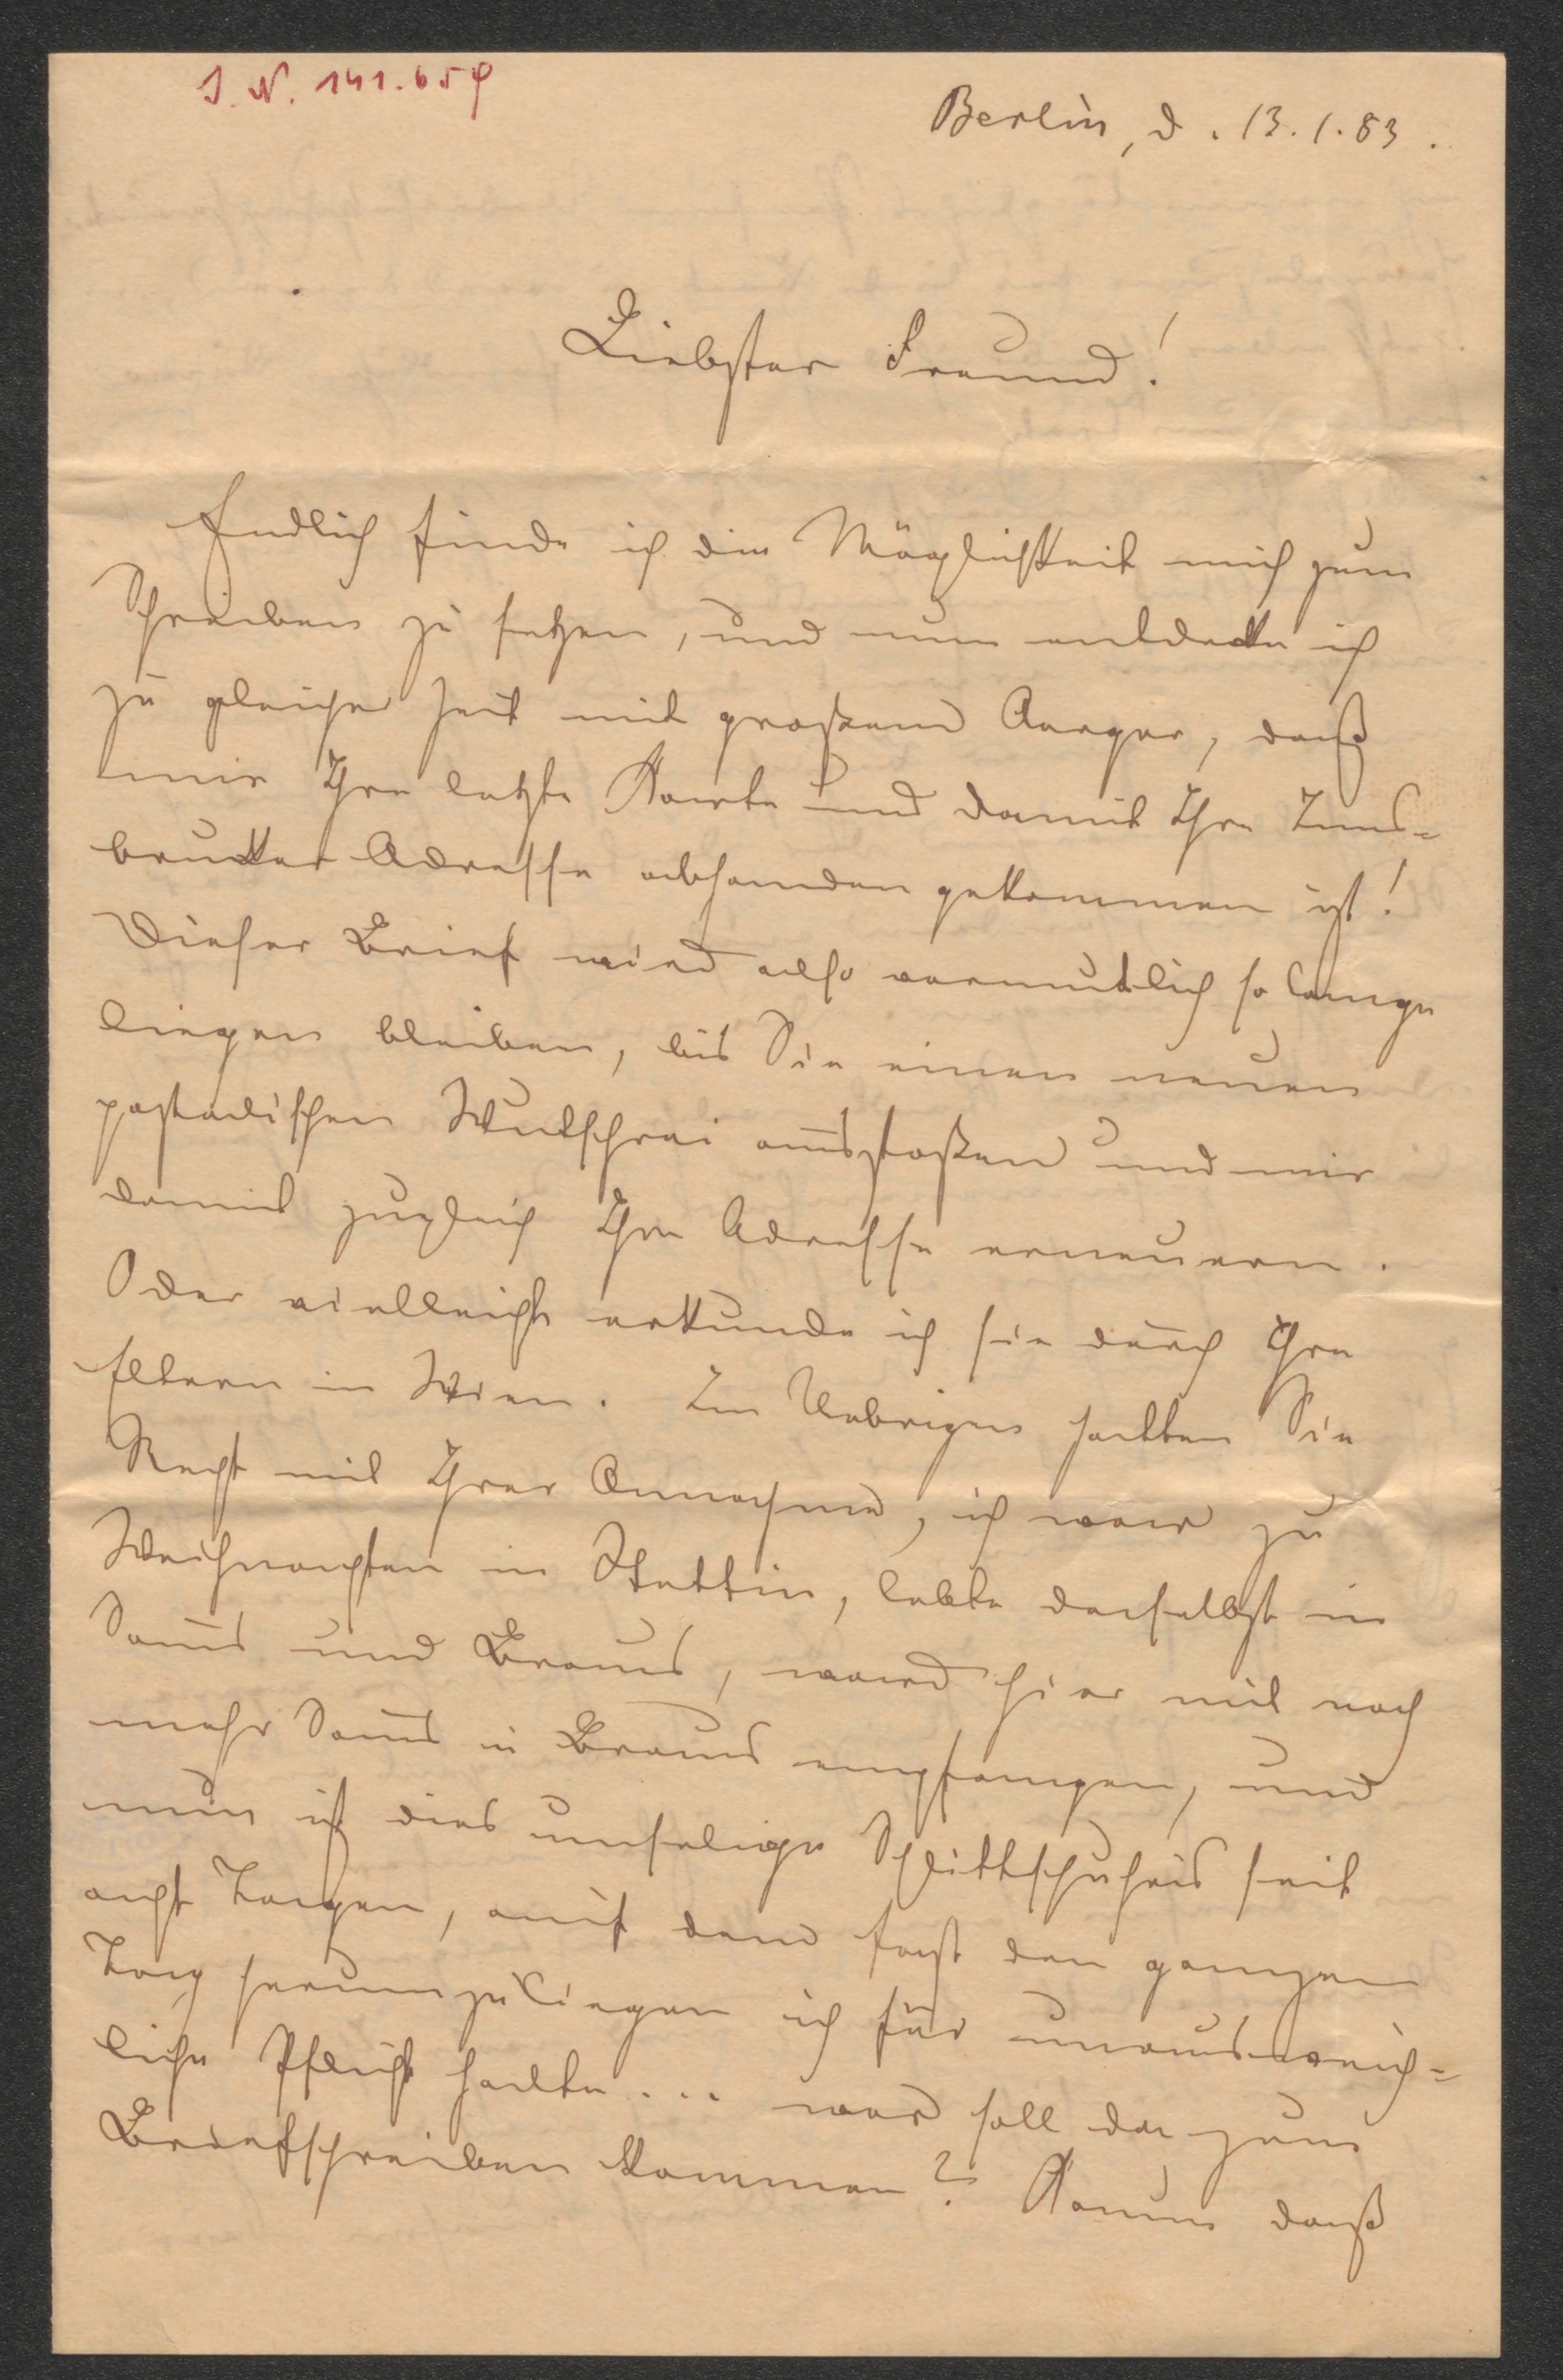 J. N. 141.659
Berlin, d. 13.1.83.
Liebster Freund!
Endlich finde ich die Möglichkeit mich zum
Schreiben zu setzen, und nun entdecke ich
zu gleicher Zeit mit großem Aerger, daß
mir Ihre letzte Karte und damit Ihre Inns-
brucker Adresse abhanden gekommen ist!
Dieser Brief wird also vermutlich so lange
liegen bleiben, bis Sie einen neuen
postalischen Wutschrei ausstoßen und mir
damit zugleich Ihre Adresse erneuern.
Oder vielleicht erkunde ich sie durch Ihre
Eltern in Wien. Im Uebrigen hatten Sie
Recht mit Ihrer Annahme, ich war zu
Weihnachten in Stettin, lebte daselbst in
Saus und Braus, ward hier mit noch
mehr Saus u Braus empfangen, und
nun ist dies unselige Schlittschuheis seit
acht Tagen, auf dem fast den ganzen
Tag herumzuliegen ich für unausweich-
liche Pflicht halte... wer soll da zum
Briefschreiben kommen? Kaum daß